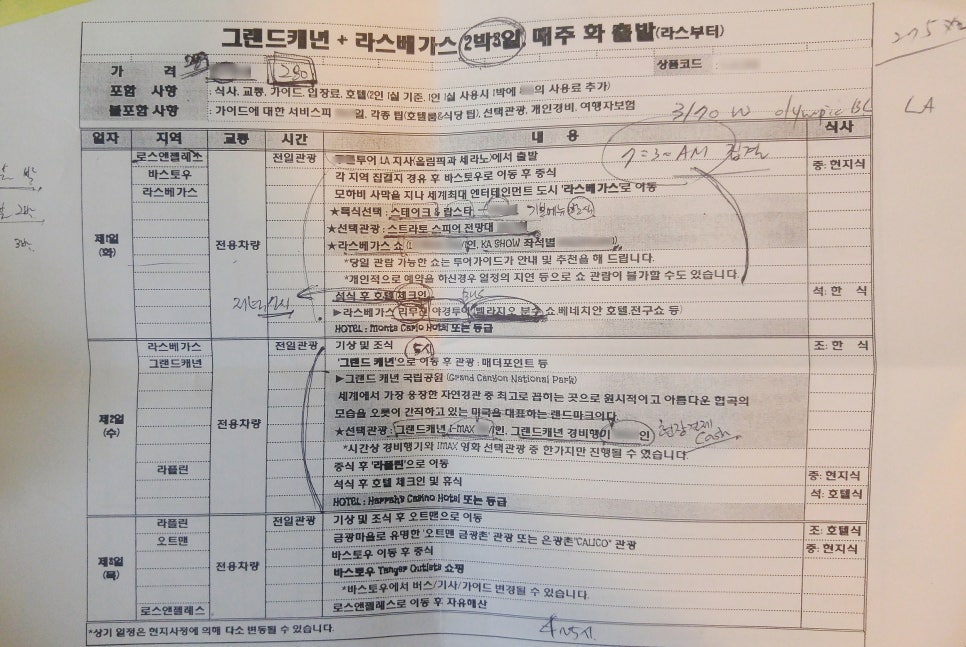 그랜드캐년 + 라스베가스 2박3일 매주 화 출발(라스부터)
가 격
230
상품코드
포함 사항 : 식사, 교통, 가이드, 입장료, 호텔(2인 1실 기준, 1인 1실 사용시 1박에 의 사용료 추가)
불포함 사항 : 가이드에 대한 서비스피 일, 각종 팁(호텔룸&식당 팁), 선택관광, 개인경비, 여행자보험
3170 W olympic BL LA
일자 지역 교통 시간 내 용 식사
로스앤젤레스 전일관광 투어 LA 지사(올림픽과 세라노)에서 출발
7:30 AM 집결
바스토우 각 지역 집결지 경유 후 바스토우로 이동 후 중식 중: 현지식
라스베가스 모하비 사막을 지나 세계최대 엔터테인먼트 도시 '라스베가스'로 이동
★특식선택 : 스테이크 & 랍스타
★선택관광 : 스트라토 스피어 전망대
★라스베가스 쇼 /1인, KA SHOW 좌석별
제1일
(화)
전용차량
*당일 관람 가능한 쇼는 투어가이드가 안내 및 추천을 해 드립니다.
*개인적으로 예약을 하신경우 일정의 지연 등으로 쇼 관람이 불가할 수도 있습니다.
석식 후 호텔 체크인 석: 한 식
BUS
▶라스베가스 리무진 야경투어(벨라지오 분수 쇼 베네치안 호텔,전구쇼 등)
HOTEL : Monte Carlo Hotel 또는 동급
라스베가스 전일관광 기상 및 조식 5시 조: 한 식
그랜드캐년 '그랜드 캐년'으로 이동 후 관광 : 매더포인트 등
▶그랜드 캐년 국립공원 (Grand Canyon National Park)
세계에서 가장 웅장한 자연경관 중 최고로 꼽히는 곳으로 원시적이고 아름다운 협곡의
모습을 오롯이 간직하고 있는 미국을 대표하는 랜드마크이다.
제2일
(수)
전용차량
★선택관광 : 그랜드캐년 I-MAX /1인, 그랜드캐년 경비행기 인
현장결제
Cash
*시간상 경비행기와 IMAX 영화 선택관광 중 한가지만 진행될 수 있습니다.
중식 후 '라플린'으로 이동
라플린 석식 후 호텔 체크인 및 휴식 중: 현지식
HOTEL : Harrah's Casino Hotel 또는 동급 석: 호텔식
라플린 전일관광 기상 및 조식 후 오트맨으로 이동
오트맨 금광마을로 유명한 '오트맨 금광촌' 관광 또는 은광촌"CALICO" 관광 조: 호텔식
바스토우 이동 후 중식 중: 현지식
제3일
(목)
전용차량
바스토우 Tanger Outlets 쇼핑
*바스토우에서 버스/기사/가이드 변경될 수 있습니다.
로스앤젤레스 로스앤젤레스로 이동 후 자유해산
*상기 일정은 현지사정에 의해 다소 변동될 수 있습니다.